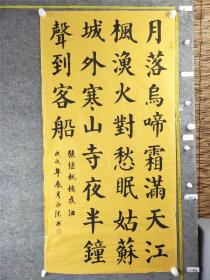 月落烏啼霜滿天江
楓漁火對愁眠姑蘇
城外寒山寺夜半鐘
聲到客船
張繼楓橋夜泊
戊戌年春月